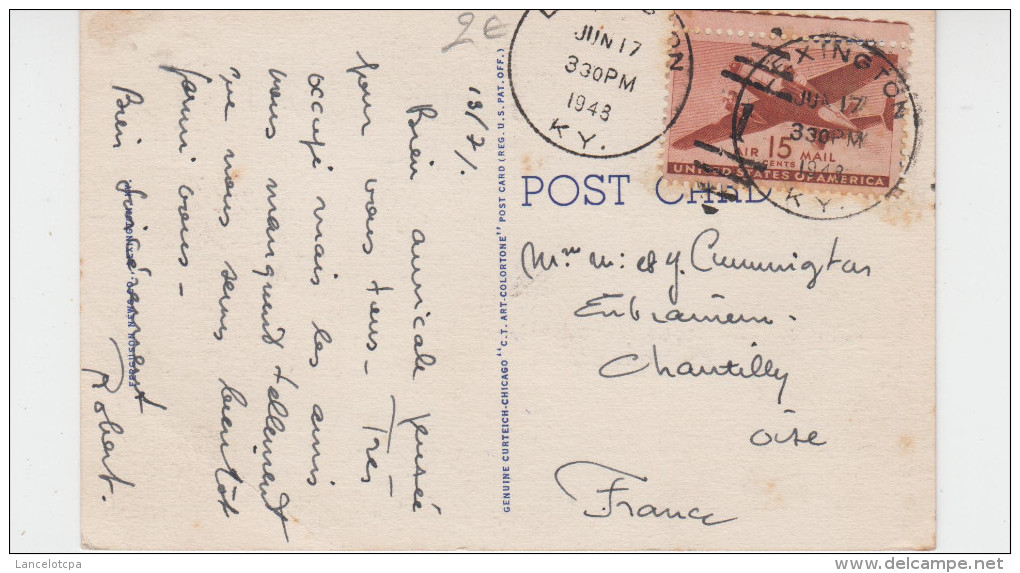 2€
LEXINGTON
JUN 17
330PM
1948
KY.
LEXINGTON
JUN 17
330PM
1948
KY.
AIR 15 MAIL
CENTS
UNITED STATES OF AMERICA
POST CARD
Mme m: et y. Cunnington
Entraineur.
Chantilly
Oise
France
GENUINE CURTEICH-CHICAGO "C.T. ART-COLORTONE" POST CARD (REG. U.S. PAT. OFF.)
Bien amicale pensée
pour vous tous - Très
occupé mais les amis
nous manquent tellement
que nous serons bientôt
parmi vous -
Bien sincèrement
Robert.
FERGUSON NEWS CO., LEXINGTON, KY.
Lancelotcpa
delcampe.net